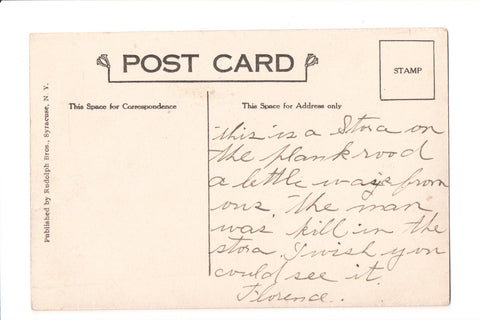 POST CARD
STAMP
This Space for Correspondence
This Space for Address only
Published by Rudolph Bros., Syracuse, N. Y.
this is a Stora on
the plank rood
a little ways from
ous. The man
was kill in the
stora. I wish you
could see it.
Florence.